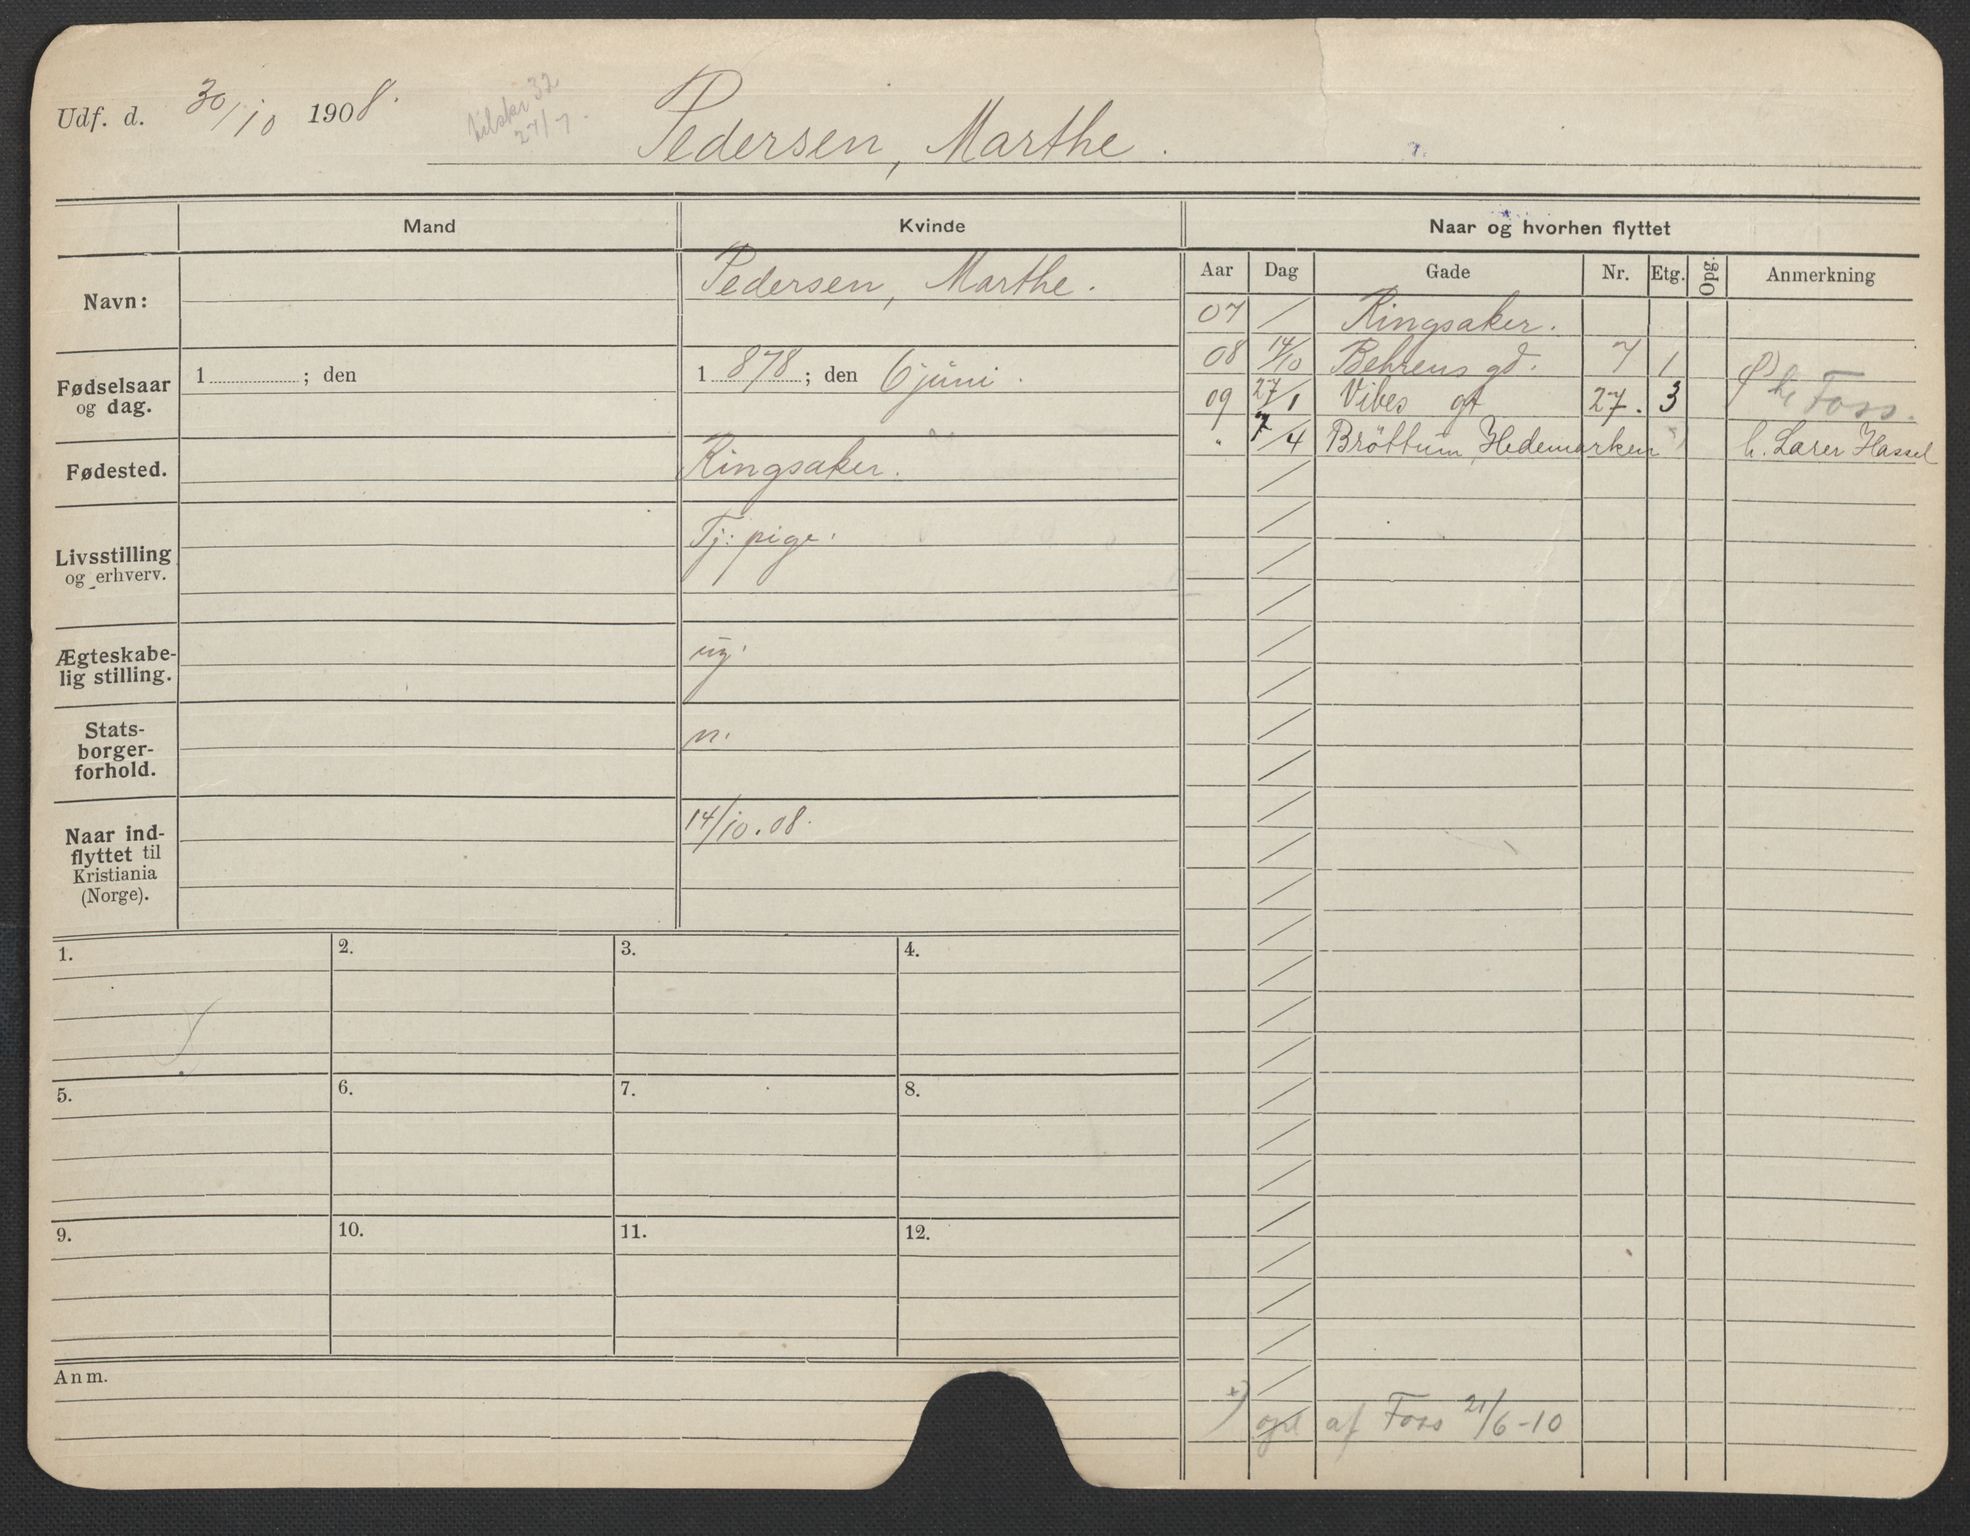 Udf. d. 30/10 1908.
32
27/7.
Pedersen, Marthe.
Mand
Kvinde
Naar og hvorhen flyttet
Aar Dag Gade Nr. Etg. Opg. Anmerkning
Navn:
Pedersen, Marthe.
Fødselsaar
og dag.
1 ; den
1 878 ; den 6 juni.
Fødested.
Ringsaker.
Livsstilling
og erhverv.
Tj: pige.
Ægteskabe-
lig stilling.
ug.
Stats-
borger-
forhold.
n.
Naar ind-
flyttet til
Kristiania
(Norge).
14/10.08.
07 / Ringsaker.
08 14/10 Behrens gd. 7 1
09 27/1 Vibes gt 27. 3 hr Foss.
" 7/4 Brøttum, Hedemarken h. Larer Hassel
1.
2.
3.
4.
5.
6.
7.
8.
9.
10.
11.
12.
Anm.
+) opl af Foss 21/6-10